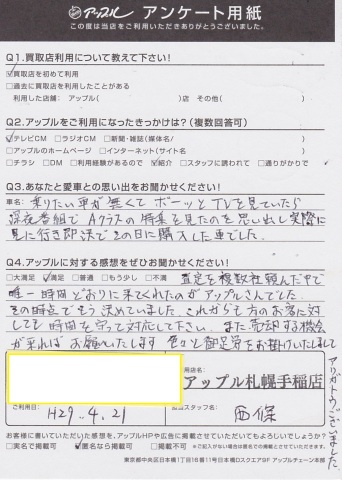 アップル アンケート用紙
この度は当店をご利用いただきありがとうございました。
Q1.買取店利用について教えて下さい!
☑買取店を初めて利用
□過去に買取店を利用したことがある
利用した店舗: アップル( )店 その他( )
Q2.アップルをご利用になったきっかけは?(複数回答可)
☑テレビCM □ラジオCM □新聞・雑誌(媒体名/ )
□アップルのホームページ □インターネット(サイト名 )
□チラシ □DM □利用経験があるので ☑紹介 □スタッフに誘われて □通りがかりで
Q3.あなたと愛車との思い出をお聞かせください!
車名: 乗りたい車が無くてボーッとTVを見ていたら
深夜番組でAクラスの特集を見たのを思い出し実際に
見に行き即決でその日に購入した車でした。
Q4.アップルに対する感想をぜひお聞かせください!
□大満足 ☑満足 □普通 □もう少し □不満 査定を複数社頼んだ中で
唯一時間どおりに来てくれたのがアップルさんでした。
その時点でもう決めていました。これからも方のお客に対
しても時間を守って対応して下さい。また売却する機会
が来ればお願いいたします 色々と御足労をお掛けいたしまして
アリガトウございました。
店名:
アップル札幌手稲店
ご利用日: H29.4.21
担当スタッフ名: 西條
お客様に書いていただいた感想を、アップルHPや広告に掲載させていただいてもよろしいでしょうか?
□実名で掲載可 ☑匿名なら掲載可 □掲載不可 ※ご記入がない場合は匿名での掲載とさせていただきます。
東京都中央区日本橋1丁目16番11号日本橋DスクエアBF アップルチェーン本部